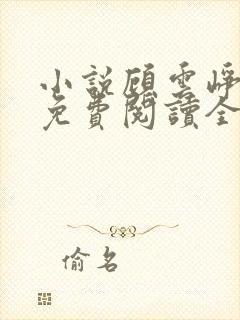 小說顧雲崢
免費閱讀全
偷名